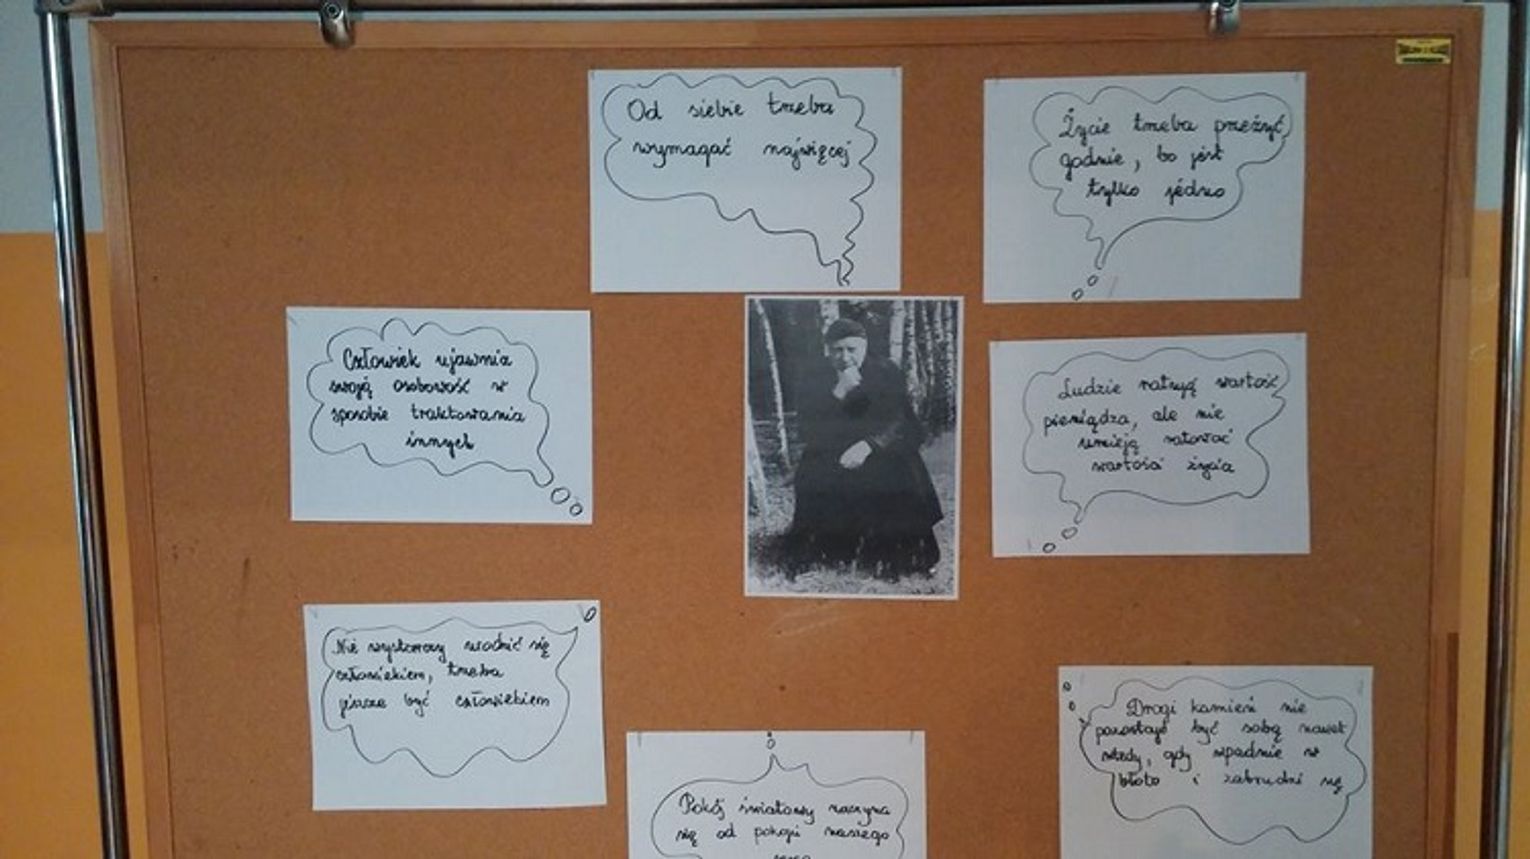 Od siebie trzeba
wymagać najwięcej
Życie trzeba przeżyć
godnie, bo jest
tylko jedno
Człowiek ujawnia
swoją osobowość w
sposobie traktowania
innych
Ludzie ratują wartość
pieniądza, ale nie
umieją ratować
wartości życia
Nie wystarczy urodzić się
człowiekiem, trzeba
jeszcze być człowiekiem
Pokój światowy zaczyna
się od pokoju naszego
Drogi kamień nie
pozostaje być sobą nawet
wtedy, gdy wpadnie w
błoto i zabrudzi się